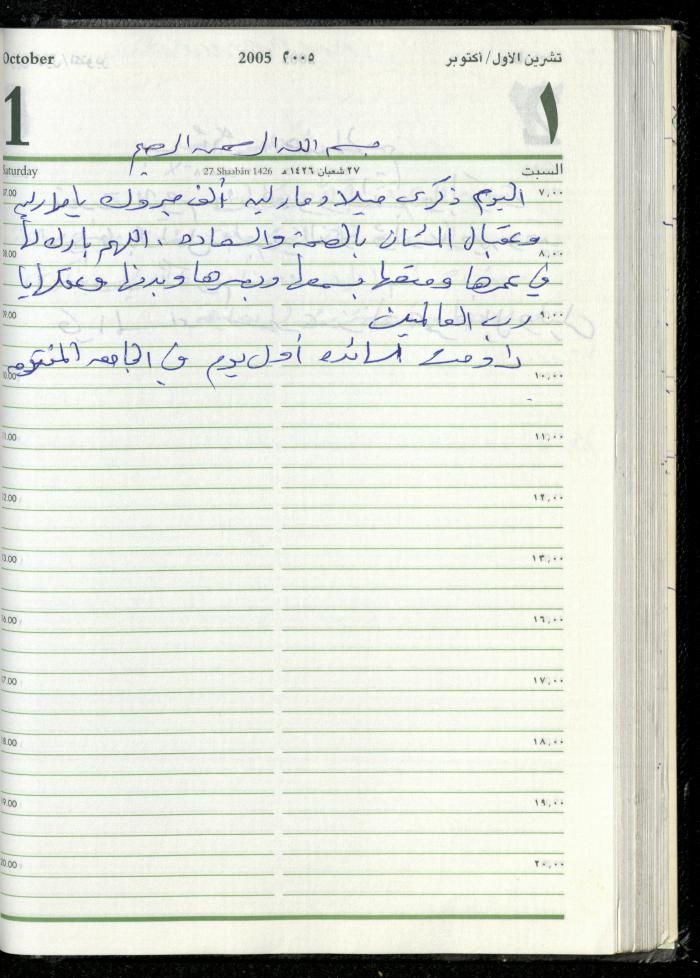 October 2005 ٢٠٠٥ تشرين الأول/أكتوبر
1 ١
بسم الله الرحمن الرحيم
Saturday 27 Shaabân 1426 ٢٧ شعبان ١٤٢٦ هـ السبت
07.00 اليوم ذكرى ميلاد ماريه ألف مبروك يا ماريه ٧,٠٠
وعقبال المئات بالصحة والسعاده ، اللهم بارك لنا
08.00 ٨,٠٠
في عمرها ومتعها بسمعها وبصرها وبدنها وعقلها يا
09.00 رب العالمين ٩,٠٠
داومت أول يوم في الجامعه المفتوحه
10.00 ١٠,٠٠
11.00 ١١,٠٠
12.00 ١٢,٠٠
13.00 ١٣,٠٠
16.00 ١٦,٠٠
17.00 ١٧,٠٠
18.00 ١٨,٠٠
19.00 ١٩,٠٠
20.00 ٢٠,٠٠